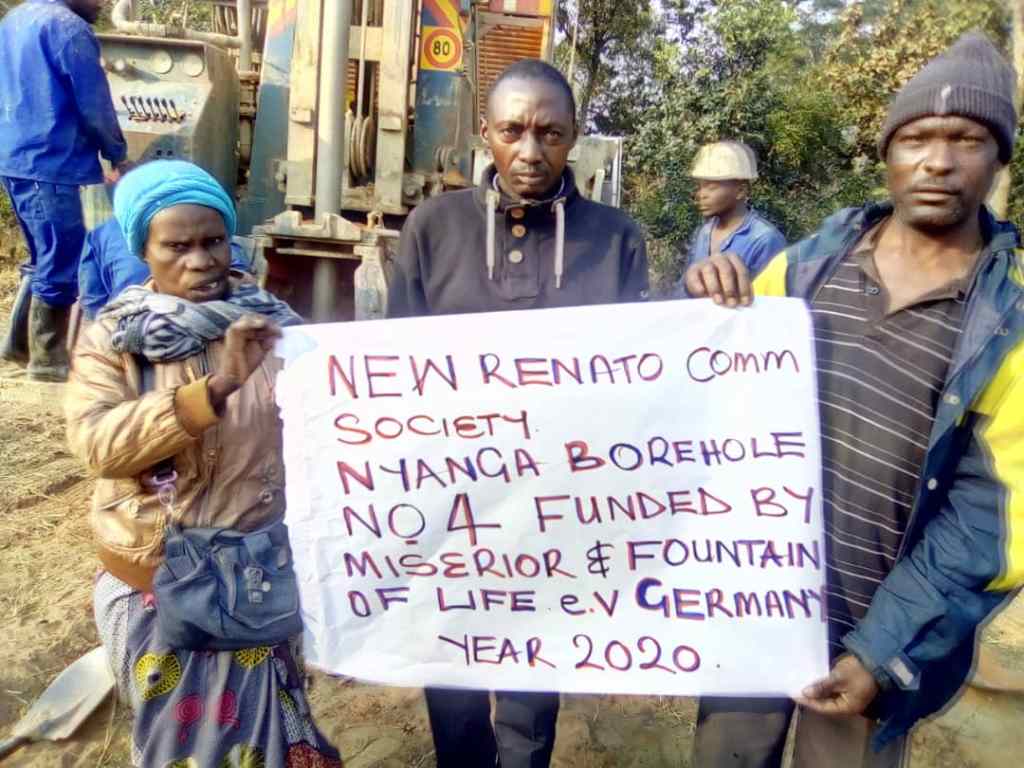 80
NEW RENATO COMM
SOCIETY.
NYANGA BOREHOLE
NO 4 FUNDED BY
MISERIOR & FOUNTAIN
OF LIFE e.V GERMANY
YEAR 2020.